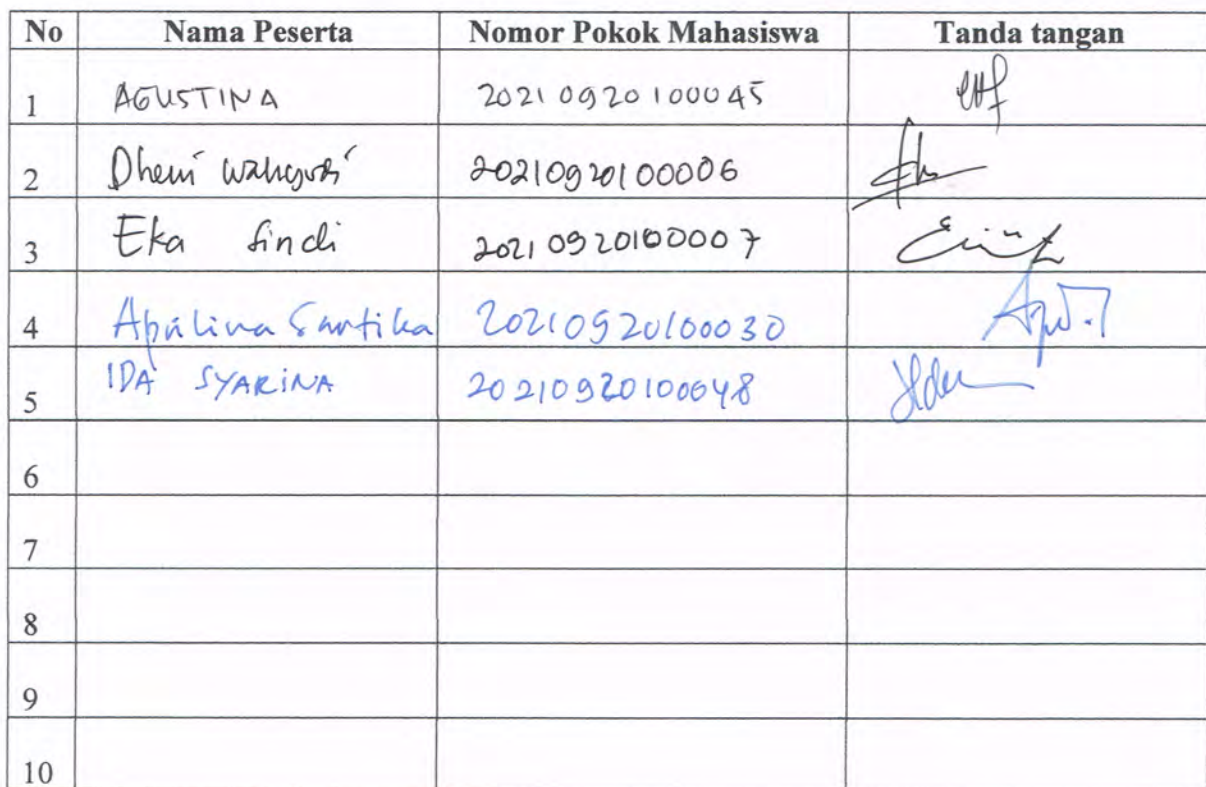 No Nama Peserta Nomor Pokok Mahasiswa Tanda tangan
1 AGUSTINA 20210920100045
2 Dheni 20210920100006
3 Eka Sindi 20210920100007
4 Aprilina Santika 20210920100030
5 IDA SYARINA 20210920100048
6
7
8
9
10